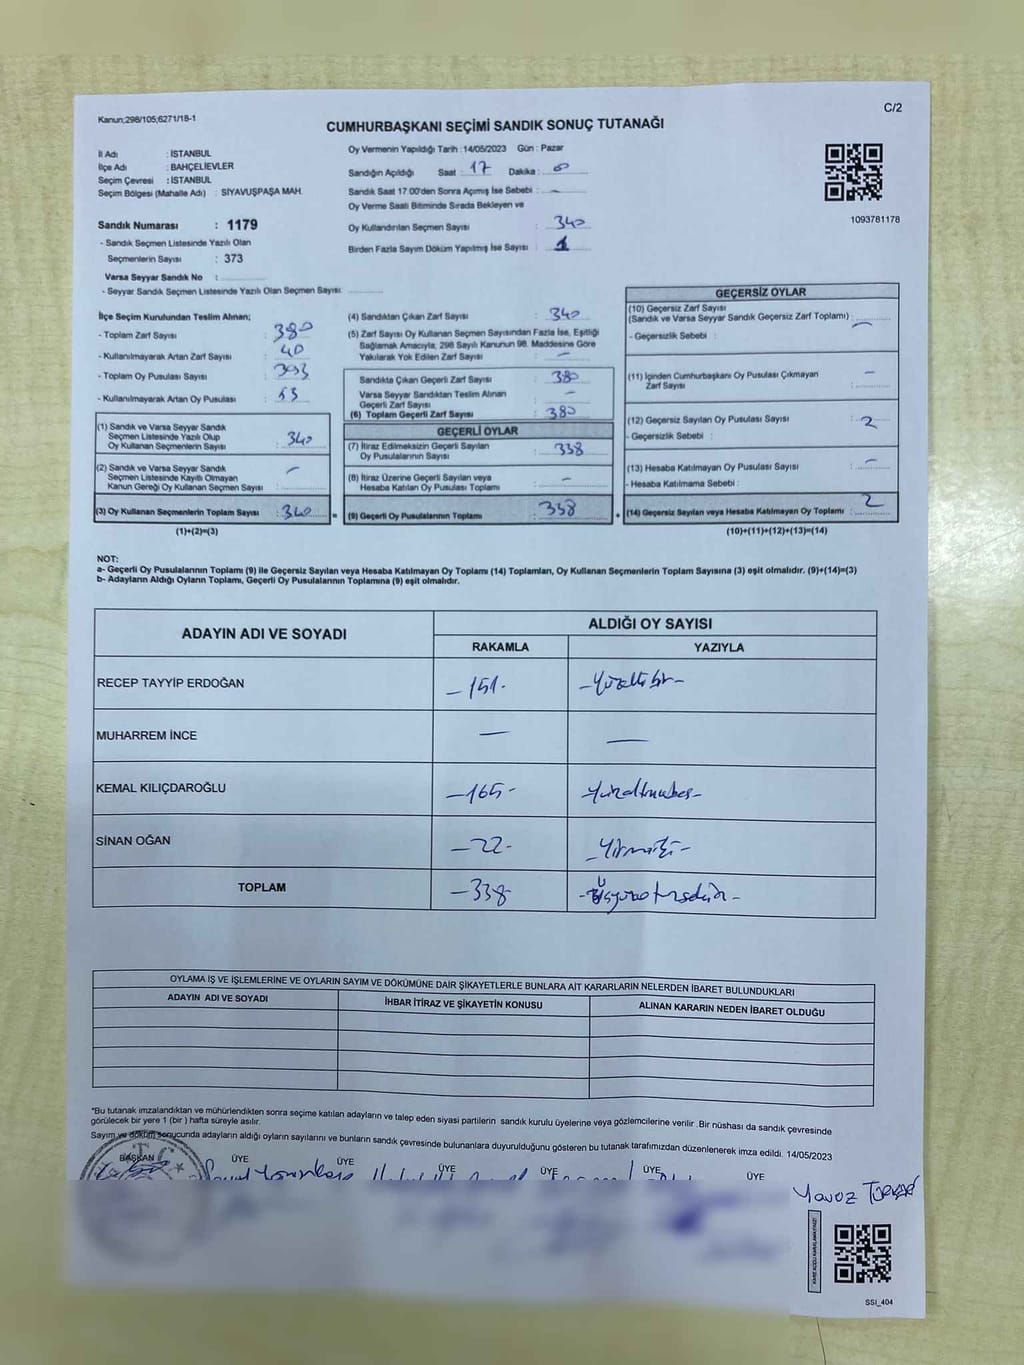 C/2
Kanun;298/105;6271/18-1
CUMHURBAŞKANI SEÇİMİ SANDIK SONUÇ TUTANAĞI
İl Adı : İSTANBUL
İlçe Adı : BAHÇELİEVLER
Seçim Çevresi : İSTANBUL
Seçim Bölgesi (Mahalle Adı) : SİYAVUŞPAŞA MAH.
Sandık Numarası : 1179
- Sandık Seçmen Listesinde Yazılı Olan
Seçmenlerin Sayısı : 373
Varsa Seyyar Sandık No :
- Seyyar Sandık Seçmen Listesinde Yazılı Olan Seçmen Sayısı:
Oy Vermenin Yapıldığı Tarih :14/05/2023 Gün : Pazar
Sandığın Açıldığı Saat : 17 Dakika :
Sandık Saat 17.00'den Sonra Açımış İse Sebebi : -
Oy Verme Saati Bitiminde Sırada Bekleyen ve
Oy Kullandırılan Seçmen Sayısı : 340
Birden Fazla Sayım Döküm Yapılmış İse Sayısı : 1
1093781178
İlçe Seçim Kurulundan Teslim Alınan;
- Toplam Zarf Sayısı : 380
- Kullanılmayarak Artan Zarf Sayısı : 40
- Toplam Oy Pusulası Sayısı : 393
- Kullanılmayarak Artan Oy Pusulası : 53
(1) Sandık ve Varsa Seyyar Sandık
Seçmen Listesinde Yazılı Olup
Oy Kullanan Seçmenlerin Sayısı : 340
(2) Sandık ve Varsa Seyyar Sandık
Seçmen Listesinde Kayıtlı Olmayan
Kanun Gereği Oy Kullanan Seçmen Sayısı : -
(3) Oy Kullanan Seçmenlerin Toplam Sayısı : 340
(1)+(2)=(3)
(4) Sandıktan Çıkan Zarf Sayısı : 340
(5) Zarf Sayısı Oy Kullanan Seçmen Sayısından Fazla İse, Eşitliği
Sağlamak Amacıyla; 298 Sayılı Kanunun 98. Maddesine Göre
Yakılarak Yok Edilen Zarf Sayısı : -
Sandıkta Çıkan Geçerli Zarf Sayısı : 380
Varsa Seyyar Sandıktan Teslim Alınan
Geçerli Zarf Sayısı : -
(6) Toplam Geçerli Zarf Sayısı : 380
GEÇERLİ OYLAR
(7) İtiraz Edilmeksizin Geçerli Sayılan
Oy Pusulalarının Sayısı : 338
(8) İtiraz Üzerine Geçerli Sayılan veya
Hesaba Katılan Oy Pusulası Toplamı : -
= (9) Geçerli Oy Pusulalarının Toplamı : 338
GEÇERSİZ OYLAR
(10) Geçersiz Zarf Sayısı
(Sandık ve Varsa Seyyar Sandık Geçersiz Zarf Toplamı) : -
- Geçersizlik Sebebi :
(11) İçinden Cumhurbaşkanı Oy Pusulası Çıkmayan
Zarf Sayısı : -
(12) Geçersiz Sayılan Oy Pusulası Sayısı : 2
- Geçersizlik Sebebi :
(13) Hesaba Katılmayan Oy Pusulası Sayısı : -
- Hesaba Katılmama Sebebi :
+ (14) Geçersiz Sayılan veya Hesaba Katılmayan Oy Toplamı : 2
(10)+(11)+(12)+(13)=(14)
NOT:
a- Geçerli Oy Pusulalarının Toplamı (9) ile Geçersiz Sayılan veya Hesaba Katılmayan Oy Toplamı (14) Toplamları, Oy Kullanan Seçmenlerin Toplam Sayısına (3) eşit olmalıdır. (9)+(14)=(3)
b- Adayların Aldığı Oyların Toplamı, Geçerli Oy Pusulalarının Toplamına (9) eşit olmalıdır.
ADAYIN ADI VE SOYADI ALDIĞI OY SAYISI
RAKAMLA YAZIYLA
RECEP TAYYİP ERDOĞAN -151- -Yüzellibir-
MUHARREM İNCE - -
KEMAL KILIÇDAROĞLU -165- Yüzaltmışbeş-
SİNAN OĞAN -22- -Yirmiiki-
TOPLAM -338- -Üçyüzotuzsekiz-
OYLAMA İŞ VE İŞLEMLERİNE VE OYLARIN SAYIM VE DÖKÜMÜNE DAİR ŞİKAYETLERLE BUNLARA AİT KARARLARIN NELERDEN İBARET BULUNDUKLARI
ADAYIN ADI VE SOYADI İHBAR İTİRAZ VE ŞİKAYETİN KONUSU ALINAN KARARIN NEDEN İBARET OLDUĞU
"Bu tutanak imzalandıktan ve mühürlendikten sonra seçime katılan adayların ve talep eden siyasi partilerin sandık kurulu üyelerine veya gözlemcilerine verilir. Bir nüshası da sandık çevresinde
görülecek bir yere 1 (bir ) hafta süreyle asılır.
Sayım ve döküm sonucunda adayların aldığı oyların sayılarını ve bunların sandık çevresinde bulunanlara duyurulduğunu gösteren bu tutanak tarafımızdan düzenlenerek imza edildi. 14/05/2023
BAŞKAN ÜYE ÜYE ÜYE ÜYE ÜYE ÜYE
Yavuz
SSI_404